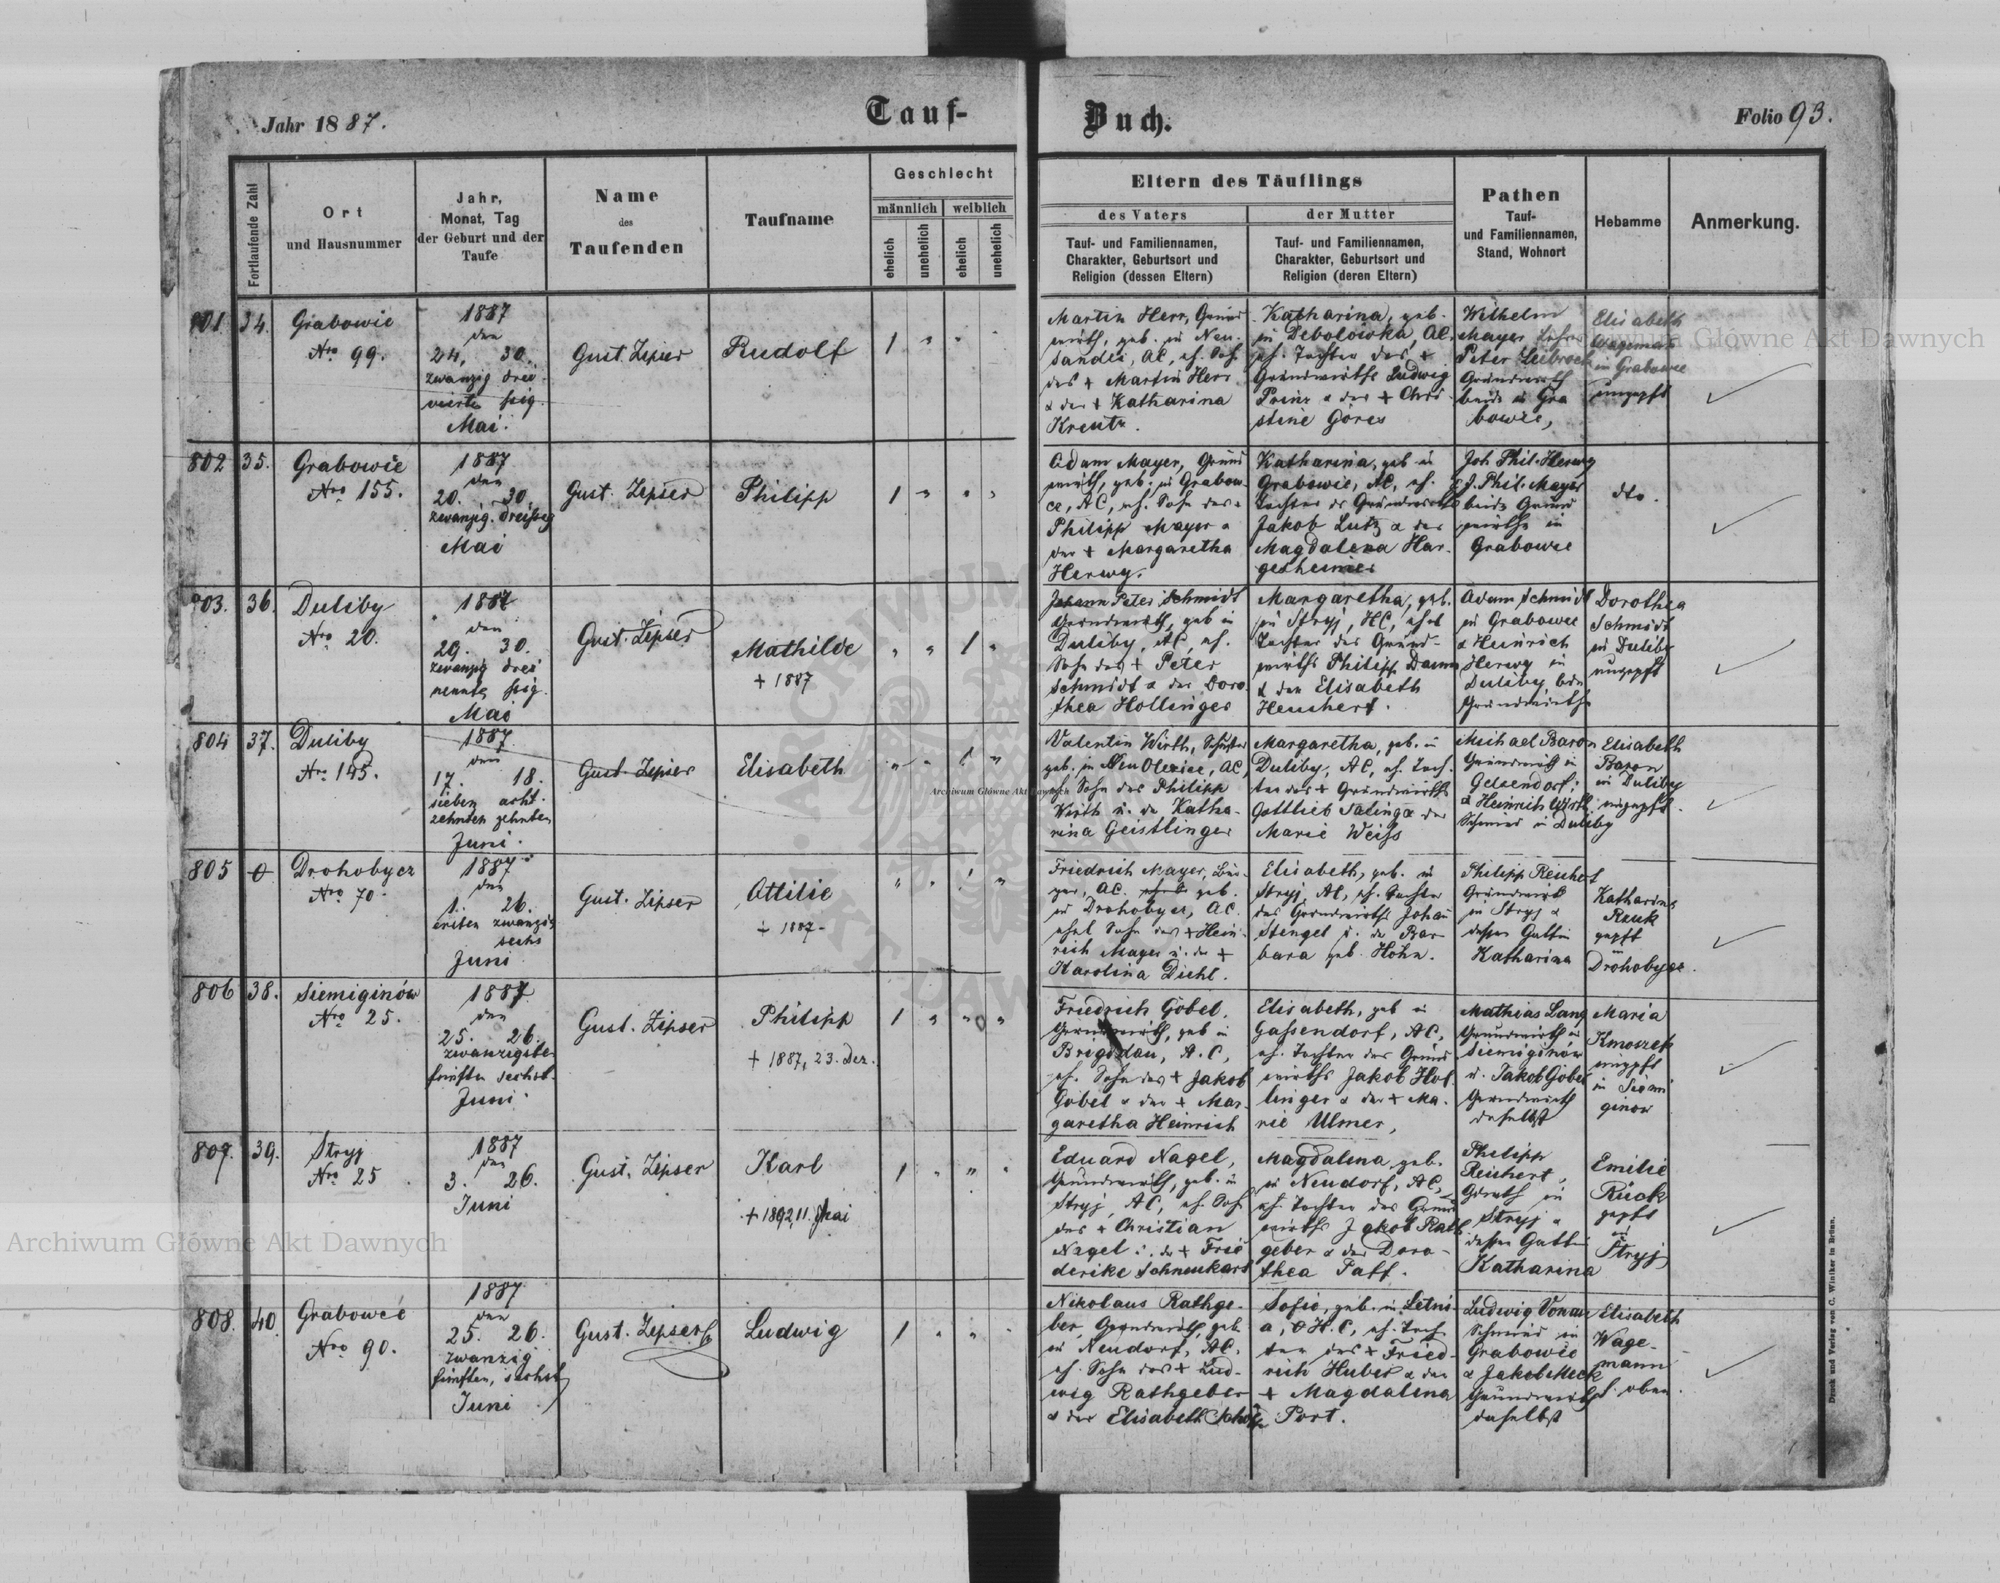 Jahr 1887.
Tauf-
Buch.
Folio 93.
Fortlaufende Zahl
Ort
und Hausnummer
Jahr,
Monat, Tag
der Geburt und der
Taufe
Name
des
Taufenden
Taufname
Geschlecht
männlich weiblich
ehelich
unehelich
ehelich
unehelich
Eltern des Täuflings
des Vaters
Tauf- und Familiennamen,
Charakter, Geburtsort und
Religion (dessen Eltern)
der Mutter
Tauf- und Familiennamen,
Charakter, Geburtsort und
Religion (deren Eltern)
Pathen
Tauf-
und Familiennamen,
Stand, Wohnort
Hebamme
Anmerkung.
801 34.
Grabowie
Nro 99.
1887
den
24. 30.
zwanzig drei
vierte ßig
Mai.
Gust. Zipser
Rudolf
1
Martin Herr, Grund
wirth, geb. in Neu
sandez, AC, eh. Sohn
des + Martin Herr
& der + Katharina
Kreutz.
Katharina, geb.
in Debolowka, AC.
eh. Tochter des +
Grundwirths Ludwig
Prinz & der + Chri
stine Göres
Wilhelm
Mayer
Peter Leibrock
Grundwirth
beide in Gra
bowie,
Elisabeth
Wagemann
in Grabowie
ungepft
802 35.
Grabowie
Nro 155.
1887
den
20. 30.
zwanzig. dreißig
Mai
Gust. Zipser
Philipp
1
Adam Mayer, Grund
wirth, geb. in Grabow
ce, AC, eh. Sohn des
Philipp Mayer &
der + Margaretha
Herwy.
Katharina, geb in
Grabowie, AC, eh.
Tochter des Grundwirths
Jakob Lutz & der
Magdalena Har
gesheimer
Joh Phil. Herwy
& J. Phil. Mayer
beide Grund
wirthe in
Grabowie
dto.
803. 36.
Duliby
Nro 20.
1887
den
29. 30.
zwanzig drei
neunte ßig.
Mai
Gust. Zipser
Mathilde
+ 1887
1
Johann Peter Schmidt
Grundwirth, geb in
Duliby, AC, eh.
Sohn des + Peter
Schmidt & der Doro
thea Hollinger
Margaretha, geb.
in Stryj, HC, ehel
Tochter des Grund-
wirths Philipp Damm
& der Elisabeth
Heuchert.
Adam Schmidt
in Grabowie
& Heinrich
Herwy in
Duliby, bde
Grundwirthe
Dorothea
Schmidt
in Duliby
ungepft
804 37.
Duliby
Nro 145.
1887.
den
17. 18.
sieben acht.
zehnten zehnten
Juni.
Gust. Zipser
Elisabeth
1
Valentin Wirth, Schuster
geb. in Neu Olexice, AC,
eh Sohn des Philipp
Wirth u. der Katha-
rina Geistlinger
Margaretha, geb. in
Duliby, AC, eh. Toch.
ter des + Grundwirths
Gottlieb Salinga & der
Marie Weiss
Michael Baron
Grundwirth in
Gelsendorf;
& Heinrich Wirth
Schmied in Duliby
Elisabeth
Baron
in Duliby
ungepft.
805
Drohobycz
Nro 70
1887.
den
1. 26.
ersten zwanzig
sechs
Juni
Gust. Zipser
Ottilie
+ 1887
1
Friedrich Mayer, Bür-
ger, AC. geb.
in Drohobycz, AC.
ehel Sohn des + Hein
rich Mayer u. der +
Karolina Diehl.
Elisabeth, geb. in
Stryj, AC, eh. Tochter
des Grundwirths Johan
Stengel u. der Bar-
bara geb. Höhn.
Philipp Reichert
Grundwirth
in Stryj &
dessen Gattin
Katharina
Katharina
Rzuk
gepft
Drohobycz.
806 38.
Siemiginów
Nro 25.
1887
den
25. 26.
zwanzigste
fünften sechst.
Juni.
Gust. Zipser
Philipp
+ 1887, 23. Dez.
1
Friedrich Göbel,
Grundwirth, geb in
Brigidau, A.C,
eh. Sohn des + Jakob
Göbel & der + Mar.
garetha Heinrich
Elisabeth, geb in
Gassendorf, AC,
eh. Tochter des Grund
wirths Jakob Hol
linger & der + Ma.
rie Ulmer,
Mathias Lang
Grundwirth in
Siemiginów
u. Jakob Göbel
Grundwirth
daselbst
Maria
Kmoszek
ungpft
in Siemi
ginow
807. 39.
Stryj
Nro 25
1887
den
3. 26.
Juni
Gust. Zipser
Karl
+ 1892, 11. Mai
1
Eduard Nagel,
Grundwirth, geb. in
Stryj, AC, eh. Sohn
des + Christian
Nagel u. der + Frie
derike Schneukart
Magdalena, geb.
in Neudorf, AC,
eh. Tochter des Grund
wirths Jakob Rath
geber & der Doro-
thea Paff.
Philipp
Reichert,
Grwth in
Stryj &
dessen Gattin
Katharina
Emilie
Rück
gepft
in
Stryj
808. 40.
Grabowce
Nro 90.
1887
den
25. 26.
zwanzig
fünften, sechst
Juni
Gust. Zipser
Ludwig
1
Nikolaus Rathge-
ber, Grundwirth, geb.
in Neudorf, AC,
eh. Sohn des + Lud-
wig Rathgeber
& der Elisabeth
Sofie, geb. in Letni-
a, H.C, eh. Toch
ter des + Fried-
rich Huber & der
+ Magdalena
Port.
Ludwig Vonau
Schmied in
Grabowie
& Jakob Meck
Grundwirth
daselbst
Elisabeth
Wage-
mann
s. oben.
Druck und Verlag von C. Winiker in Brünn.
Archiwum Główne Akt Dawnych
Archiwum Główne Akt Dawnych
Archiwum Główne Akt Dawnych